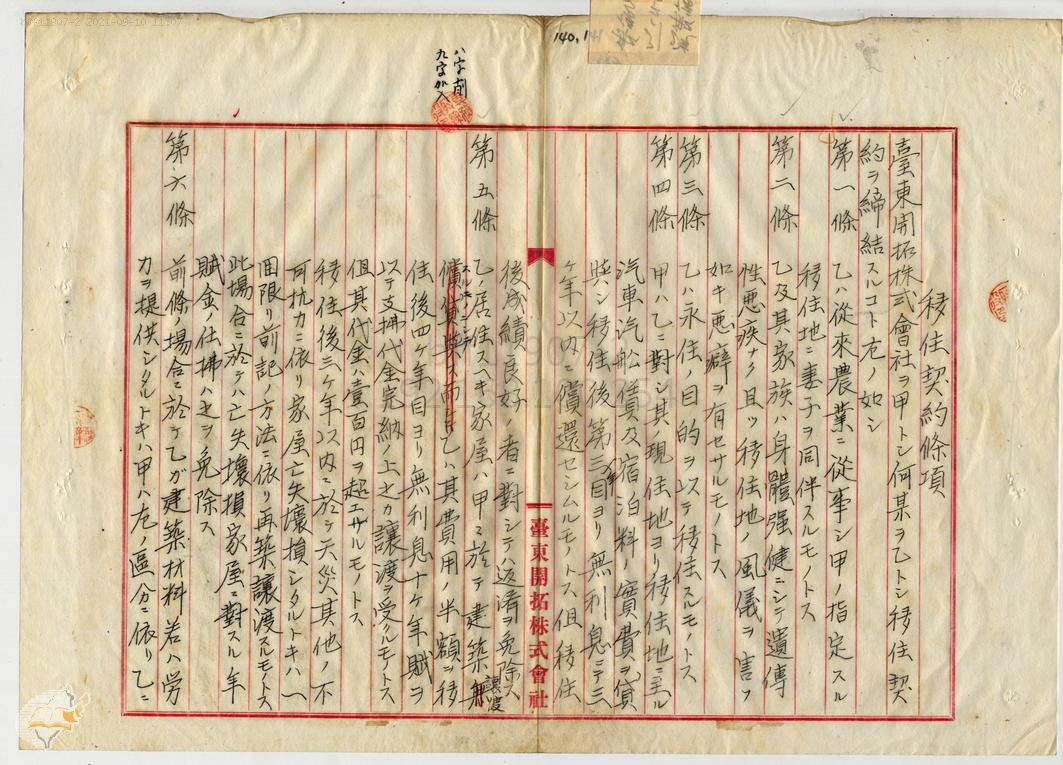 移住契約條項
臺東開拓株式會社ヲ甲トシ何某ヲ乙トシ移住契
約ヲ締結スルコト左ノ如シ
第一條 乙ハ從來農業ニ從事シ甲ノ指定スル
移住地ニ妻子ヲ同伴スルモノトス
第二條 乙及其家族ハ身體强健ニシテ遺傳
性惡疾ナク且ツ移住地ノ風儀ヲ害フ
如キ惡癖ヲ有セサルモノトス
第三條 乙ハ永住ノ目的ヲ以テ移住スルモノトス
第四條 甲ハ乙ニ對シ其現住地ヨリ移住地ニ至ル
汽車汽舩賃及宿泊料ノ實費ヲ貸
與シ移住後第三年目ヨリ無利息ニテ三
ケ年以內ニ償還セシムルモノトス但移住
後成績良好ノ者ニ對シテハ返濟ヲ免除ス
第五條 乙ノ居住スヘキ家屋ハ甲ニ於テ建築
讓渡
スルモノトシ
乙ハ其費用ノ半額ヲ移
住後四ケ年目ヨリ無利息十ケ年賦ヲ
以テ支拂代金完納ノ上之カ讓渡ヲ受クルモノトス
但其代金ハ壹百円ヲ超エサルモノトス
移住後三ケ年以內ニ於テ天災其他ノ不
可抗力ニ依リ家屋亡失壞損シタルトキハ一
回限リ前記ノ方法ニ依リ再築讓渡スルモノトス
此場合ニ於テハ亡失壞損家屋ニ對スル年
賦金ノ仕拂ハ之ヲ免除ス
第六條 前條ノ場合ニ於テ乙ガ建築材料若ハ労
力ヲ提供シタルトキハ甲ハ左ノ區分ニ依リ乙ニ
八字削
九字加入
臺東開拓株式會社
2021-09-10 11:07